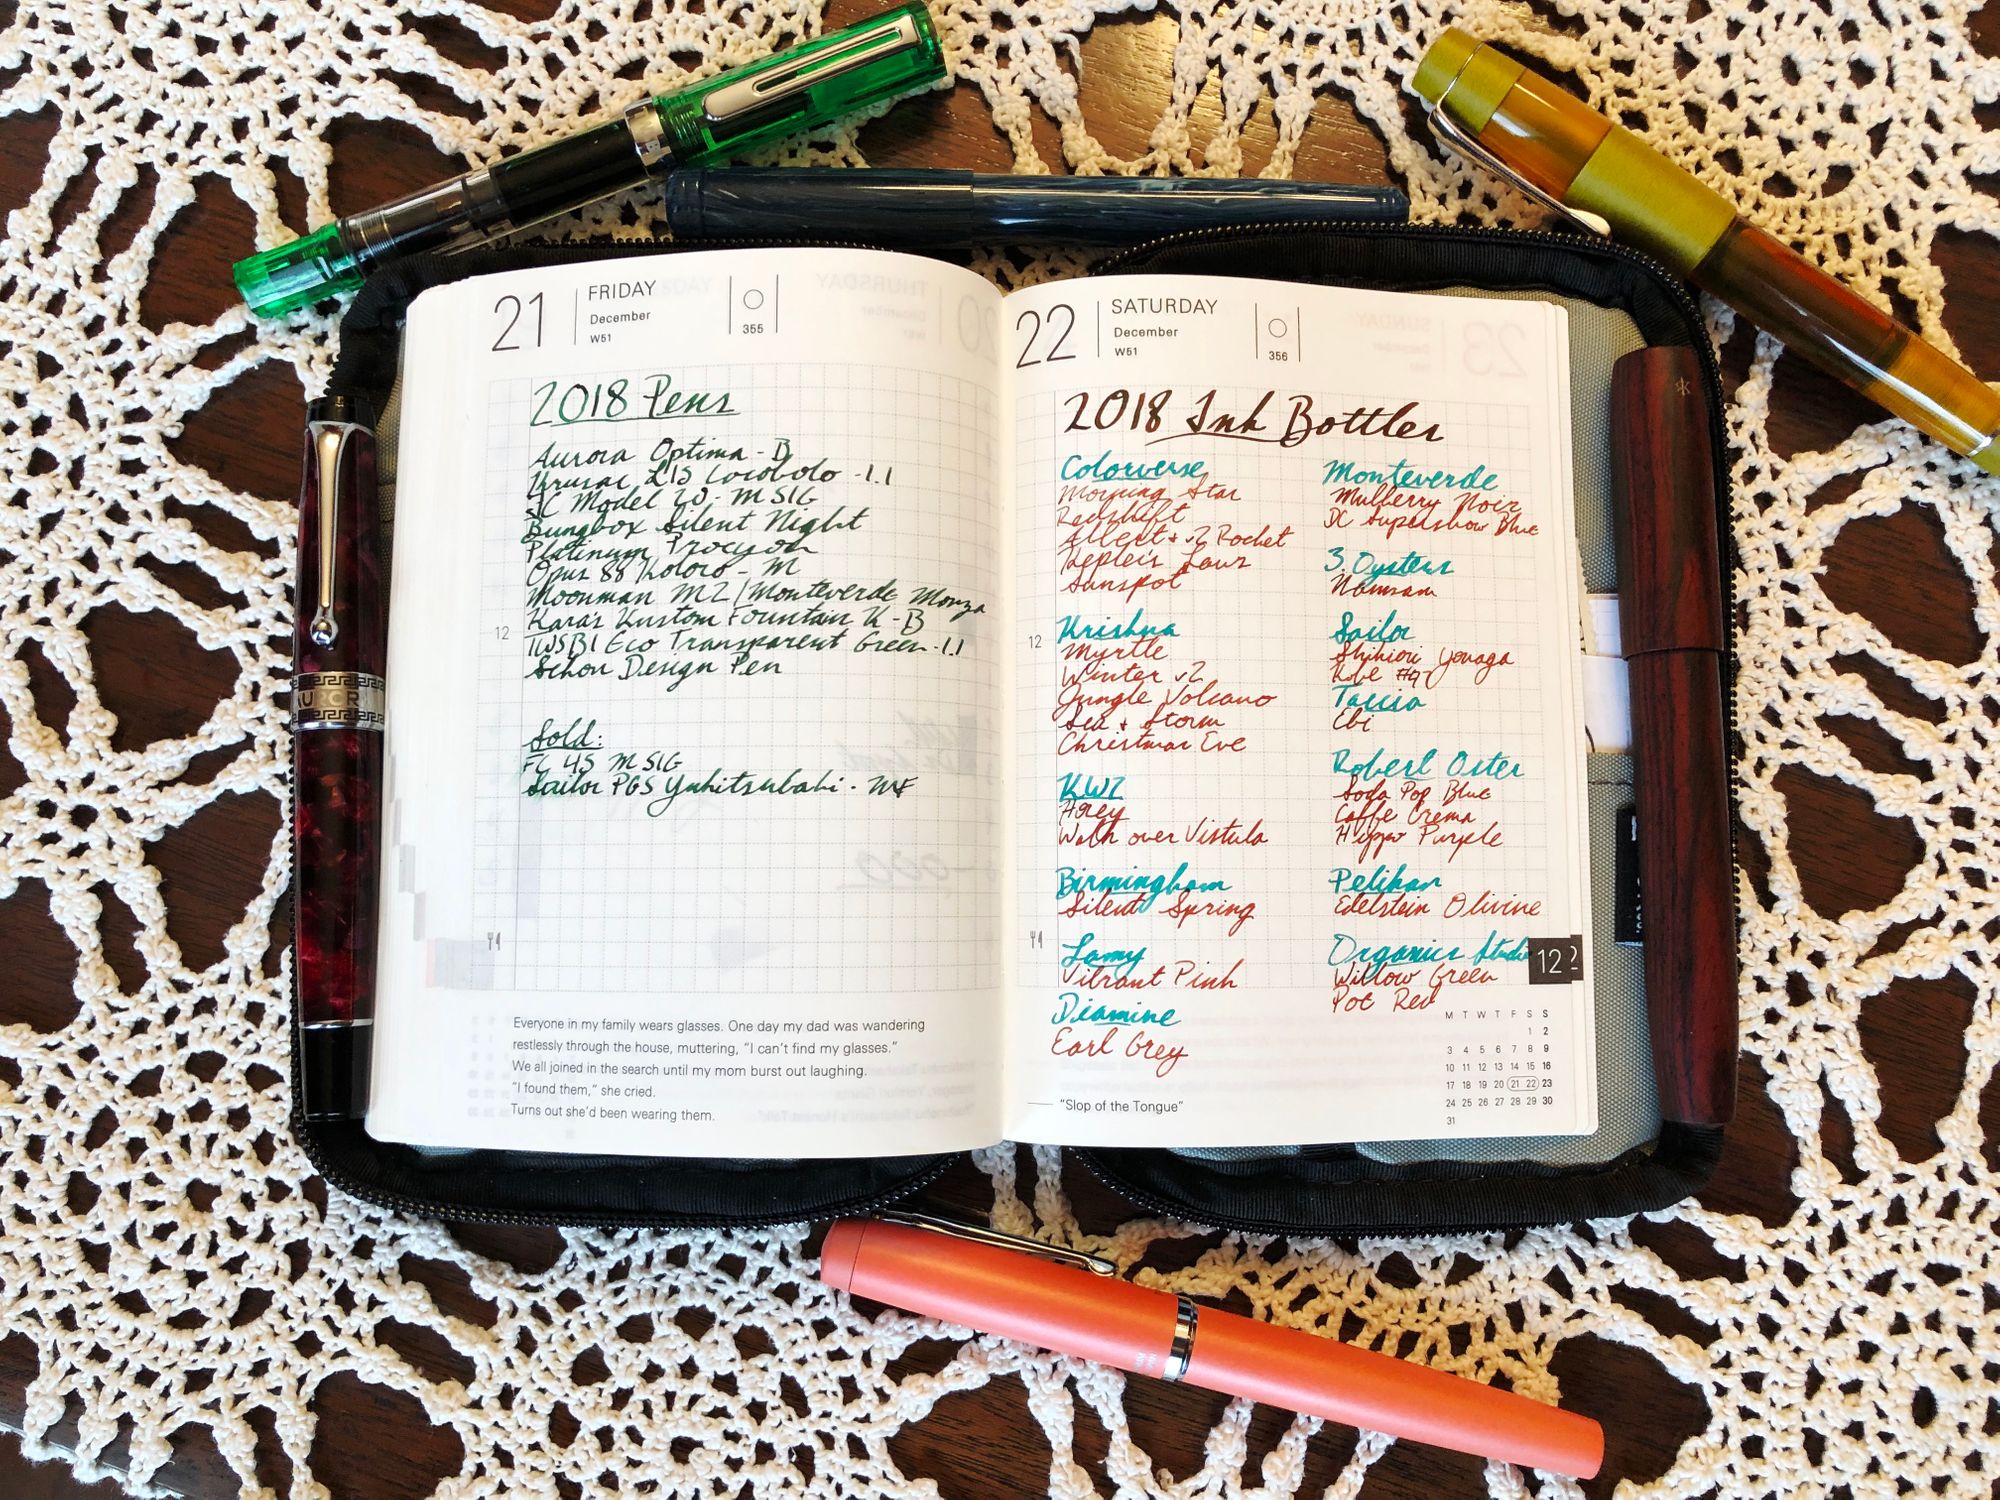 21
FRIDAY
December
W51
355
2018 Pens
Aurora Optima - B
Krusac L15 Cocobolo - 1.1
JC Model 20 - M SIG
Bungbox Silent Night
Platinum Procyon
Opus 88 Koloro - M
Moonman M2 / Monteverde Monza
Kara's Kustom Fountain K - B
TWSBI Eco Transparent Green - 1.1
Schon Design Pen
Sold:
FC 45 M SIG
Sailor PGS Yukitsubaki - MF
12
Everyone in my family wears glasses. One day my dad was wandering
restlessly through the house, muttering, "I can't find my glasses."
We all joined in the search until my mom burst out laughing.
"I found them," she cried.
Turns out she'd been wearing them.
22
SATURDAY
December
W51
356
2018 Ink Bottles
Colorverse
Morning Star
Redshift
Albert + v2 Rocket
Kepler's Laws
Sunspot
Krishna
Myrtle
Winter v2
Jungle Volcano
Sea + Storm
Christmas Eve
KWZ
Honey
Walk over Vistula
Birmingham
Silent Spring
Lamy
Vibrant Pink
Diamine
Earl Grey
Monteverde
Mulberry Noir
DC Supershow Blue
3 Oysters
Namsan
Sailor
Shikiori Yonaga
Kobe
Taccia
Ebi
Robert Oster
Soda Pop Blue
Caffe Crema
Hippo Purple
Pelikan
Edelstein Olivine
Organics Studio
Willow Green
Pot Red
12
12
M T W T F S S
1 2
3 4 5 6 7 8 9
10 11 12 13 14 15 16
17 18 19 20 21 22 23
24 25 26 27 28 29 30
31
"Slop of the Tongue"